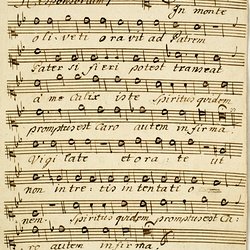 Responsorium I
In monte
oliveti oravit ad Patrem
Pater si fieri potest transeat
â me Calix iste Spiritus quidem
promptus est Caro autem infirma.
Vigilate et orate ut
non intretis in tentatio
nem. Spiritus quidem promptus est Ca:
ro autem infirma.